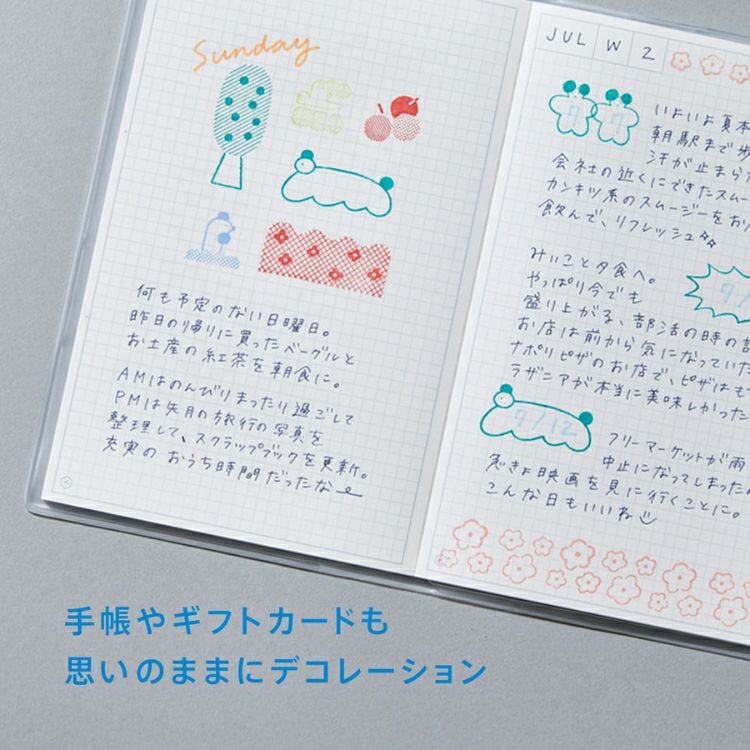 Sunday
何も予定のない日曜日。
昨日の帰りに買ったベーグルと
お土産の紅茶を朝食に。
AMはのんびりまったり過ごして
PMは先月の旅行の写真を
整理して、スクラップブックを更新。
充実の おうち時間だったな
JUL W 2
7 7
いよいよ夏本
朝駅まで歩
汗が止まらな
会社の近くにできたスムー
カンキツ系のスムージーをお
飲んで、リフレッシュ
みいこと夕食へ。
やっぱり今でも
7/
盛り上がる、部活の時の
お店は前から気になっていた
ナポリピザのお店で、ピザはも
ラザニアが本当に美味しかった
7/12
フリーマーケットが雨
中止になってしまった
急きょ映画を見に行くことに。
こんな日もいいね
手帳やギフトカードも
思いのままにデコレーション